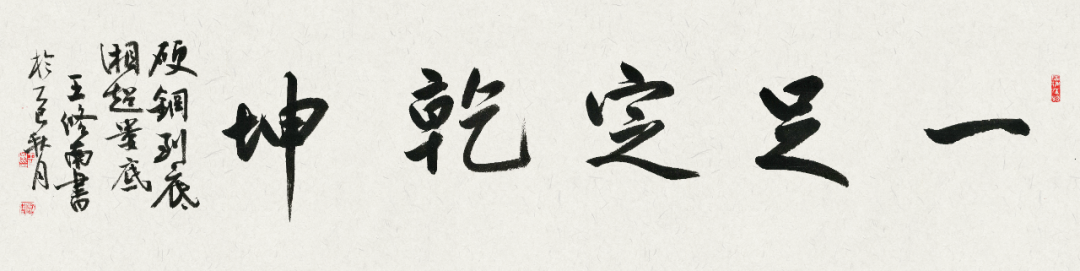 一足定乾坤
硬钢到底
湘超登底
王修南書
於乙巳秋月